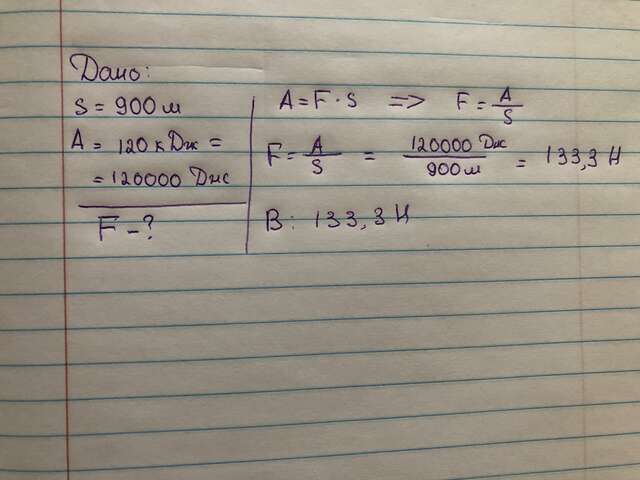 Дано:
S = 900 м
A = 120 кДж =
= 120000 Дж
F - ?
A = F · S => F = A/S
F = A/S = 120000 Дж/900 м = 133,3 Н
В: 133,3 Н